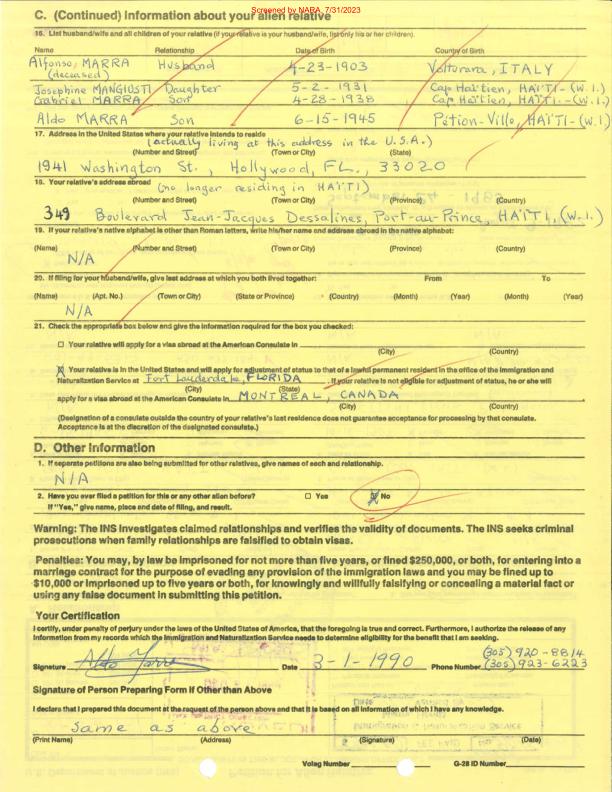 Screened by NARA, 7/31/2023
C. (Continued) Information about your alien relative
16. List husband/wife and all children of your relative (if your relative is your husband/wife, list only his or her children).
Name Relationship Date of Birth Country of Birth
Alfonso MARRA Husband 4-23-1903 Volturara, ITALY
(deceased)
Josephine MANGIOSTI Daughter 5-2-1931 Cap Haïtien, HAÏTI-(W.I.)
Gabriel MARRA Son 4-28-1938 Cap Haïtien, HAÏTI-(W.I.)
Aldo MARRA Son 6-15-1945 Pétion-Ville, HAÏTI-(W.I)
17. Address in the United States where your relative intends to reside
(actually living at this address in the U.S.A.)
(Number and Street) (Town or City) (State)
1941 Washington St., Hollywood, FL., 33020
18. Your relative's address abroad
(no longer residing in HAÏTI)
(Number and Street) (Town or City) (Province) (Country)
349 Boulevard Jean-Jacques Dessalines, Port-au-Prince, HAÏTI, (W.I.)
19. If your relative's native alphabet is other than Roman letters, write his/her name and address abroad in the native alphabet:
(Name) (Number and Street) (Town or City) (Province) (Country)
N/A
20. If filing for your husband/wife, give last address at which you both lived together: From To
(Name) (Apt. No.) (Town or City) (State or Province) (Country) (Month) (Year) (Month) (Year)
N/A
21. Check the appropriate box below and give the information required for the box you checked:
☐ Your relative will apply for a visa abroad at the American Consulate in
(City) (Country)
☒ Your relative is in the United States and will apply for adjustment of status to that of a lawful permanent resident in the office of the Immigration and
Naturalization Service at Fort Lauderdale, FLORIDA. If your relative is not eligible for adjustment of status, he or she will
(City) (State)
apply for a visa abroad at the American Consulate in MONTREAL, CANADA.
(City) (Country)
(Designation of a consulate outside the country of your relative's last residence does not guarantee acceptance for processing by that consulate.
Acceptance is at the discretion of the designated consulate.)
D. Other Information
1. If separate petitions are also being submitted for other relatives, give names of each and relationship.
N/A
2. Have you ever filed a petition for this or any other alien before? ☐ Yes ☒ No
If "Yes," give name, place and date of filing, and result.
Warning: The INS investigates claimed relationships and verifies the validity of documents. The INS seeks criminal
prosecutions when family relationships are falsified to obtain visas.
Penalties: You may, by law be imprisoned for not more than five years, or fined $250,000, or both, for entering into a
marriage contract for the purpose of evading any provision of the immigration laws and you may be fined up to
$10,000 or imprisoned up to five years or both, for knowingly and willfully falsifying or concealing a material fact or
using any false document in submitting this petition.
Your Certification
I certify, under penalty of perjury under the laws of the United States of America, that the foregoing is true and correct. Furthermore, I authorize the release of any
information from my records which the Immigration and Naturalization Service needs to determine eligibility for the benefit that I am seeking.
(305) 920-8814
Signature Aldo Marra Date 3-1-1990 Phone Number (305) 923-6223
Signature of Person Preparing Form if Other than Above
I declare that I prepared this document at the request of the person above and that it is based on all information of which I have any knowledge.
same as above
(Print Name) (Address) (Signature) (Date)
Volag Number G-28 ID Number